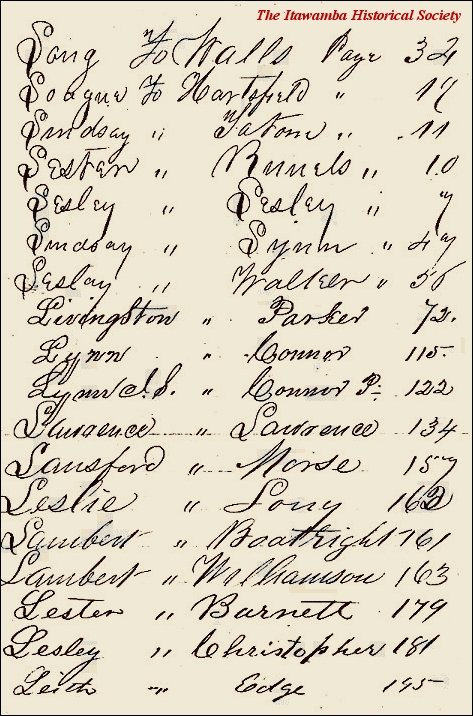 The Itawamba Historical Society
Long To Walls Page 34
Logue To Hartsfield " 17
Lindsay " Tatom " 11
Lester " Runels " 10
Lesley " Lesley " 7
Lindsay " Lynn " 47
Lesley " Walker " 56
Livingston " Parker 72.
Lynn " Connor 115.
Lynn " Connor P. 122
Lawrence " Lawrence 134
Lansford " Morse 157
Leslie " Long 162
Lambert " Boatright 161
Lambert " Williamson 163
Lester " Burnett 179
Lesley " Christopher 181
Leith " Edge 195